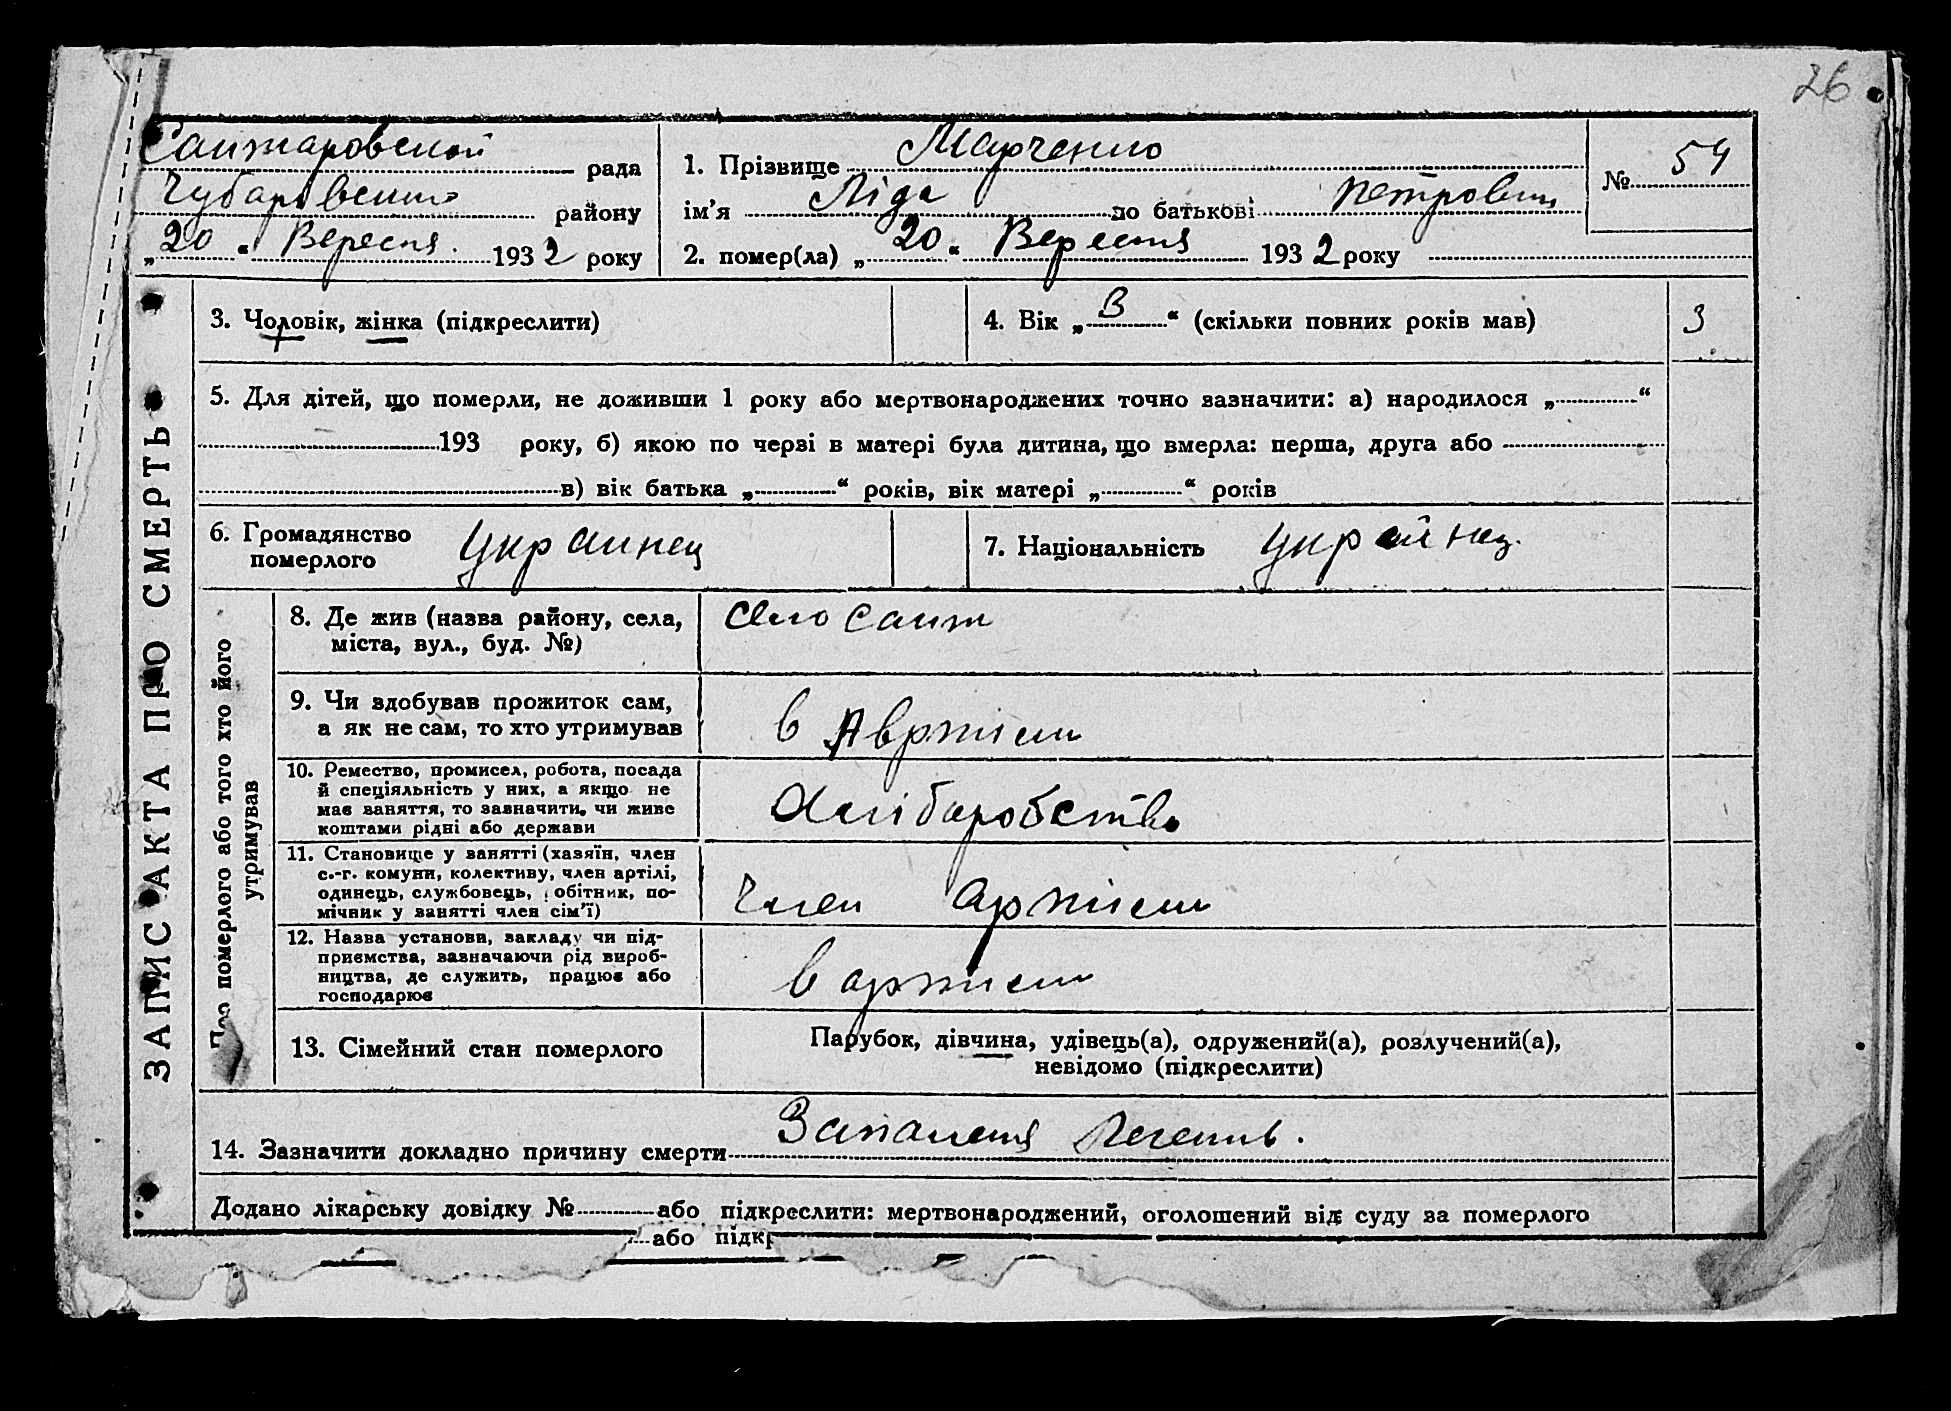 26
Санжаровской рада
Чубаровского району
„20“ Вересня. 1932 року
1. Прізвище Марченко
ім'я Ліда по батькові Петровна
2. помер(ла) „20“ Вересня 1932 року
№ 54
ЗАПИС АКТА ПРО СМЕРТЬ
3. Чоловік, жінка (підкреслити)
4. Вік „3“ (скільки повних років мав)
3
5. Для дітей, що померли, не доживши 1 року або мертвонароджених точно зазначити: а) народилося „ “
193 року, б) якою по черзі в матері була дитина, що вмерла: перша, друга або
в) вік батька „ “ років, вік матері „ “ років
6. Громадянство
померлого
Украинец
7. Національність Украйнец.
Про померлого або того хто його
утримував
8. Де жив (назва району, села,
міста, вул., буд. №)
село Санж
9. Чи здобував прожиток сам,
а як не сам, то хто утримував
в Артісли
10. Ремество, промисел, робота, посада
й спеціяльність у них, а якщо не
має заняття, то зазначити, чи живе
коштами рідні або держави
11. Становище у занятті (хазяїн, член
с.-г. комуни, колективу, член артілі,
одинець, службовець, обітник, по-
мічник у занятті член сім'ї)
Член артісли
12. Назва установи, закладу чи під-
приємства, зазначаючи рід вироб-
ництва, де служить, працює або
господарює
в артісли
13. Сімейний стан померлого
Парубок, дівчина, удівець(а), одружений(а), розлучений(а),
невідомо (підкреслити)
14. Зазначити докладно причину смерти Запаленя легенів.
Додано лікарську довідку № або підкреслити: мертвонароджений, оголошений від суду за померлого
або підкр